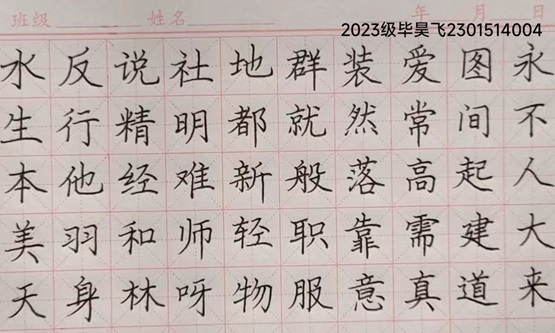 班级 姓名 年 月 日
2023级毕昊飞2301514004
水反说社地群装爱图永
生行精明都就然常间不
本他经难新般落高起人
美羽和师轻职靠需建大
天身林呀物服意真道来